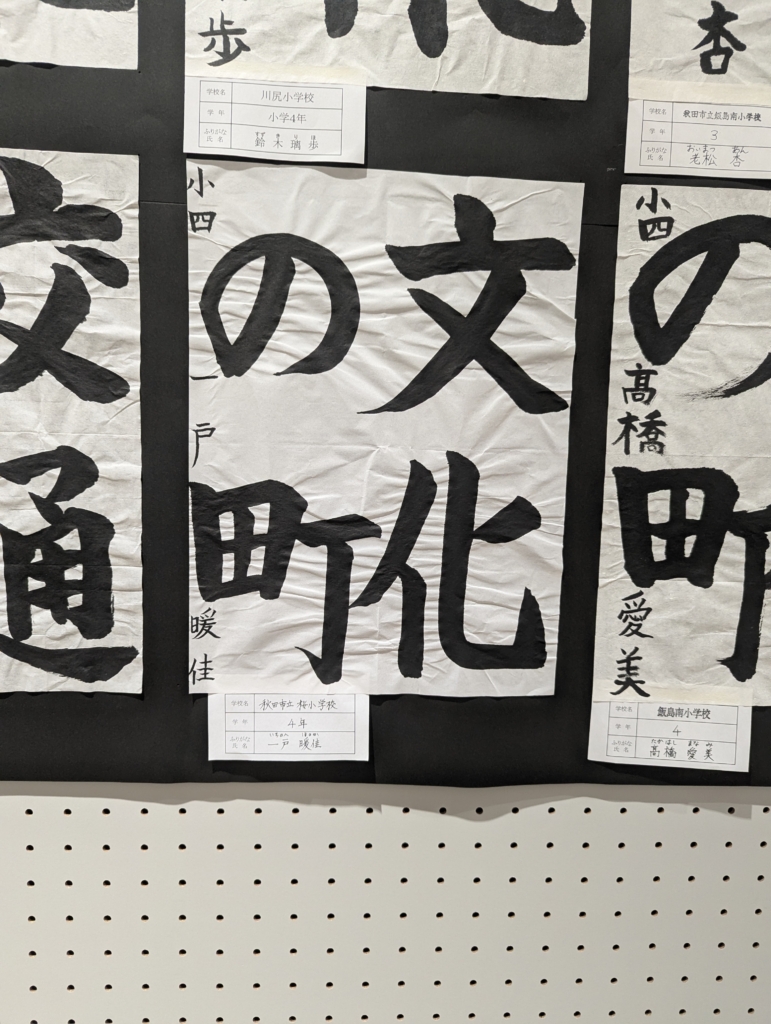 歩
学校名 川尻小学校
学年 小学4年
ふりがな すず き り ほ
氏名 鈴木璃歩
杏
学校名 秋田市立飯島南小学校
学年 3
ふりがな おいまつ あん
氏名 老松 杏
交通
文化
の町
小四 一戸 暖佳
学校名 秋田市立 桜小学校
学年 4年
ふりがな いちのへ ほのか
氏名 一戸 暖佳
の町
小四 髙橋 愛美
学校名 飯島南小学校
学年 4
ふりがな たかはし まなみ
氏名 髙橋 愛美